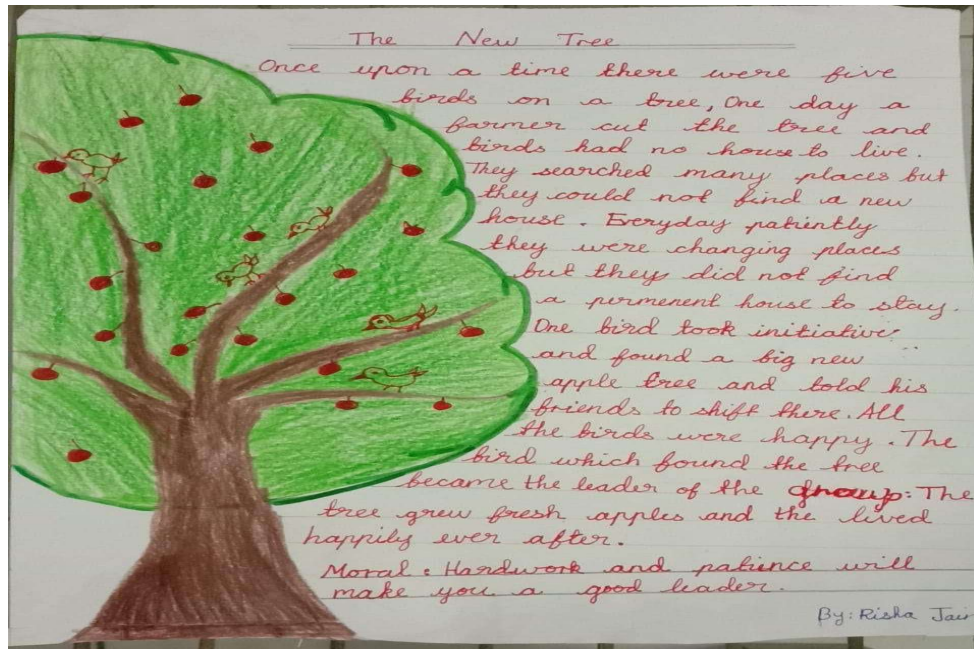 The New Tree
Once upon a time there were five
birds on a tree, One day a
farmer cut the tree and
birds had no house to live.
They searched many places but
they could not find a new
house. Everyday patiently
they were changing places
but they did not find
a permenent house to stay.
One bird took initiative
and found a big new
apple tree and told his
friends to shift there. All
the birds were happy. The
bird which found the tree
became the leader of the group: The
tree grew fresh apples and the lived
happily ever after.
Moral: Hardwork and patience will
make you a good leader.
By: Risha Jain